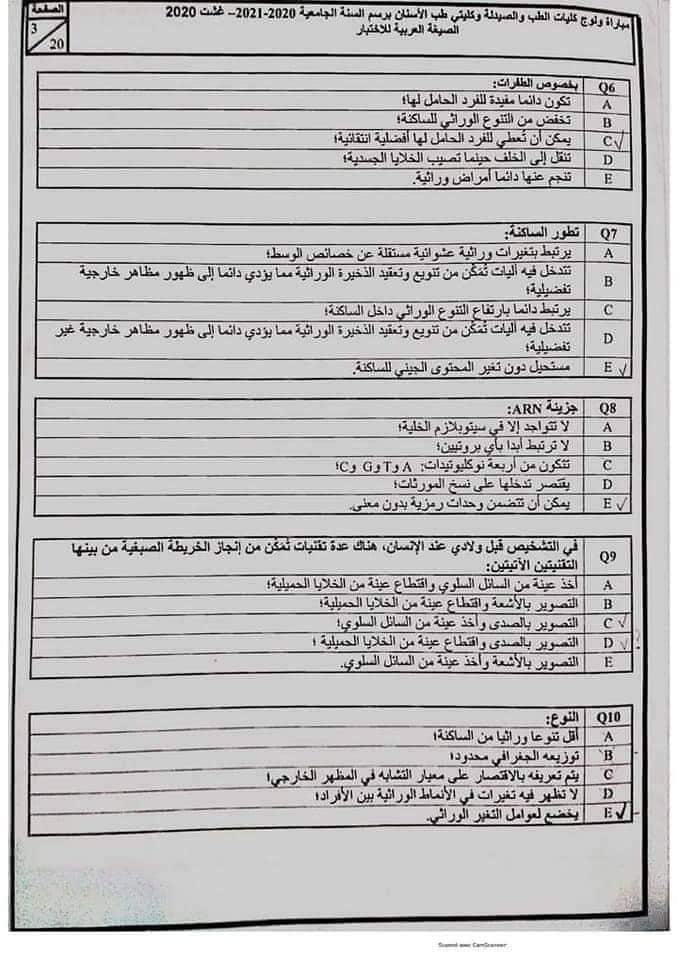 مباراة ولوج كليات الطب والصيدلة وكليتي طب الأسنان برسم السنة الجامعية 2020-2021 – غشت 2020
الصيغة العربية للاختبار
الصفحة
3
20
Q6 بخصوص الطفرات:
A تكون دائما مفيدة للفرد الحامل لها؛
B تخفض من التنوع الوراثي للساكنة؛
C✓ يمكن أن تُعطي للفرد الحامل لها أفضلية انتقائية؛
D تنقل إلى الخلف حينما تصيب الخلايا الجسدية؛
E تنجم عنها دائما أمراض وراثية.
Q7 تطور الساكنة:
A يرتبط بتغيرات وراثية عشوائية مستقلة عن خصائص الوسط؛
B تتدخل فيه آليات تُمَكِّن من تنويع وتعقيد الذخيرة الوراثية مما يؤدي دائما إلى ظهور مظاهر خارجية
تفضيلية؛
C يرتبط دائما بارتفاع التنوع الوراثي داخل الساكنة؛
D تتدخل فيه آليات تُمَكِّن من تنويع وتعقيد الذخيرة الوراثية مما يؤدي دائما إلى ظهور مظاهر خارجية غير
تفضيلية؛
E ✓ مستحيل دون تغير المحتوى الجيني للساكنة.
Q8 جزيئة ARN:
A لا تتواجد إلا في سيتوبلازم الخلية؛
B لا ترتبط أبدا بأي بروتيين؛
C تتكون من أربعة نوكليوتيدات: A وT وG وC؛
D يقتصر تدخلها على نسخ المورثات؛
E ✓ يمكن أن تتضمن وحدات رمزية بدون معنى.
Q9 في التشخيص قبل ولادي عند الإنسان، هناك عدة تقنيات تُمَكِّن من إنجاز الخريطة الصبغية من بينها
التقنيتين الآتيتين:
A أخذ عينة من السائل السلوي واقتطاع عينة من الخلايا الحميلية؛
B التصوير بالأشعة واقتطاع عينة من الخلايا الحميلية؛
C ✓ التصوير بالصدى وأخذ عينة من السائل السلوي؛
D ✓ التصوير بالصدى واقتطاع عينة من الخلايا الحميلية ؛
E التصوير بالأشعة وأخذ عينة من السائل السلوي.
Q10 النوع:
A أقل تنوعا وراثيا من الساكنة؛
B توزيعه الجغرافي محدود؛
C يتم تعريفه بالاقتصار على معيار التشابه في المظهر الخارجي؛
D لا تظهر فيه تغيرات في الأنماط الوراثية بين الأفراد؛
E ✓ يخضع لعوامل التغير الوراثي.
Scanned avec CamScanner